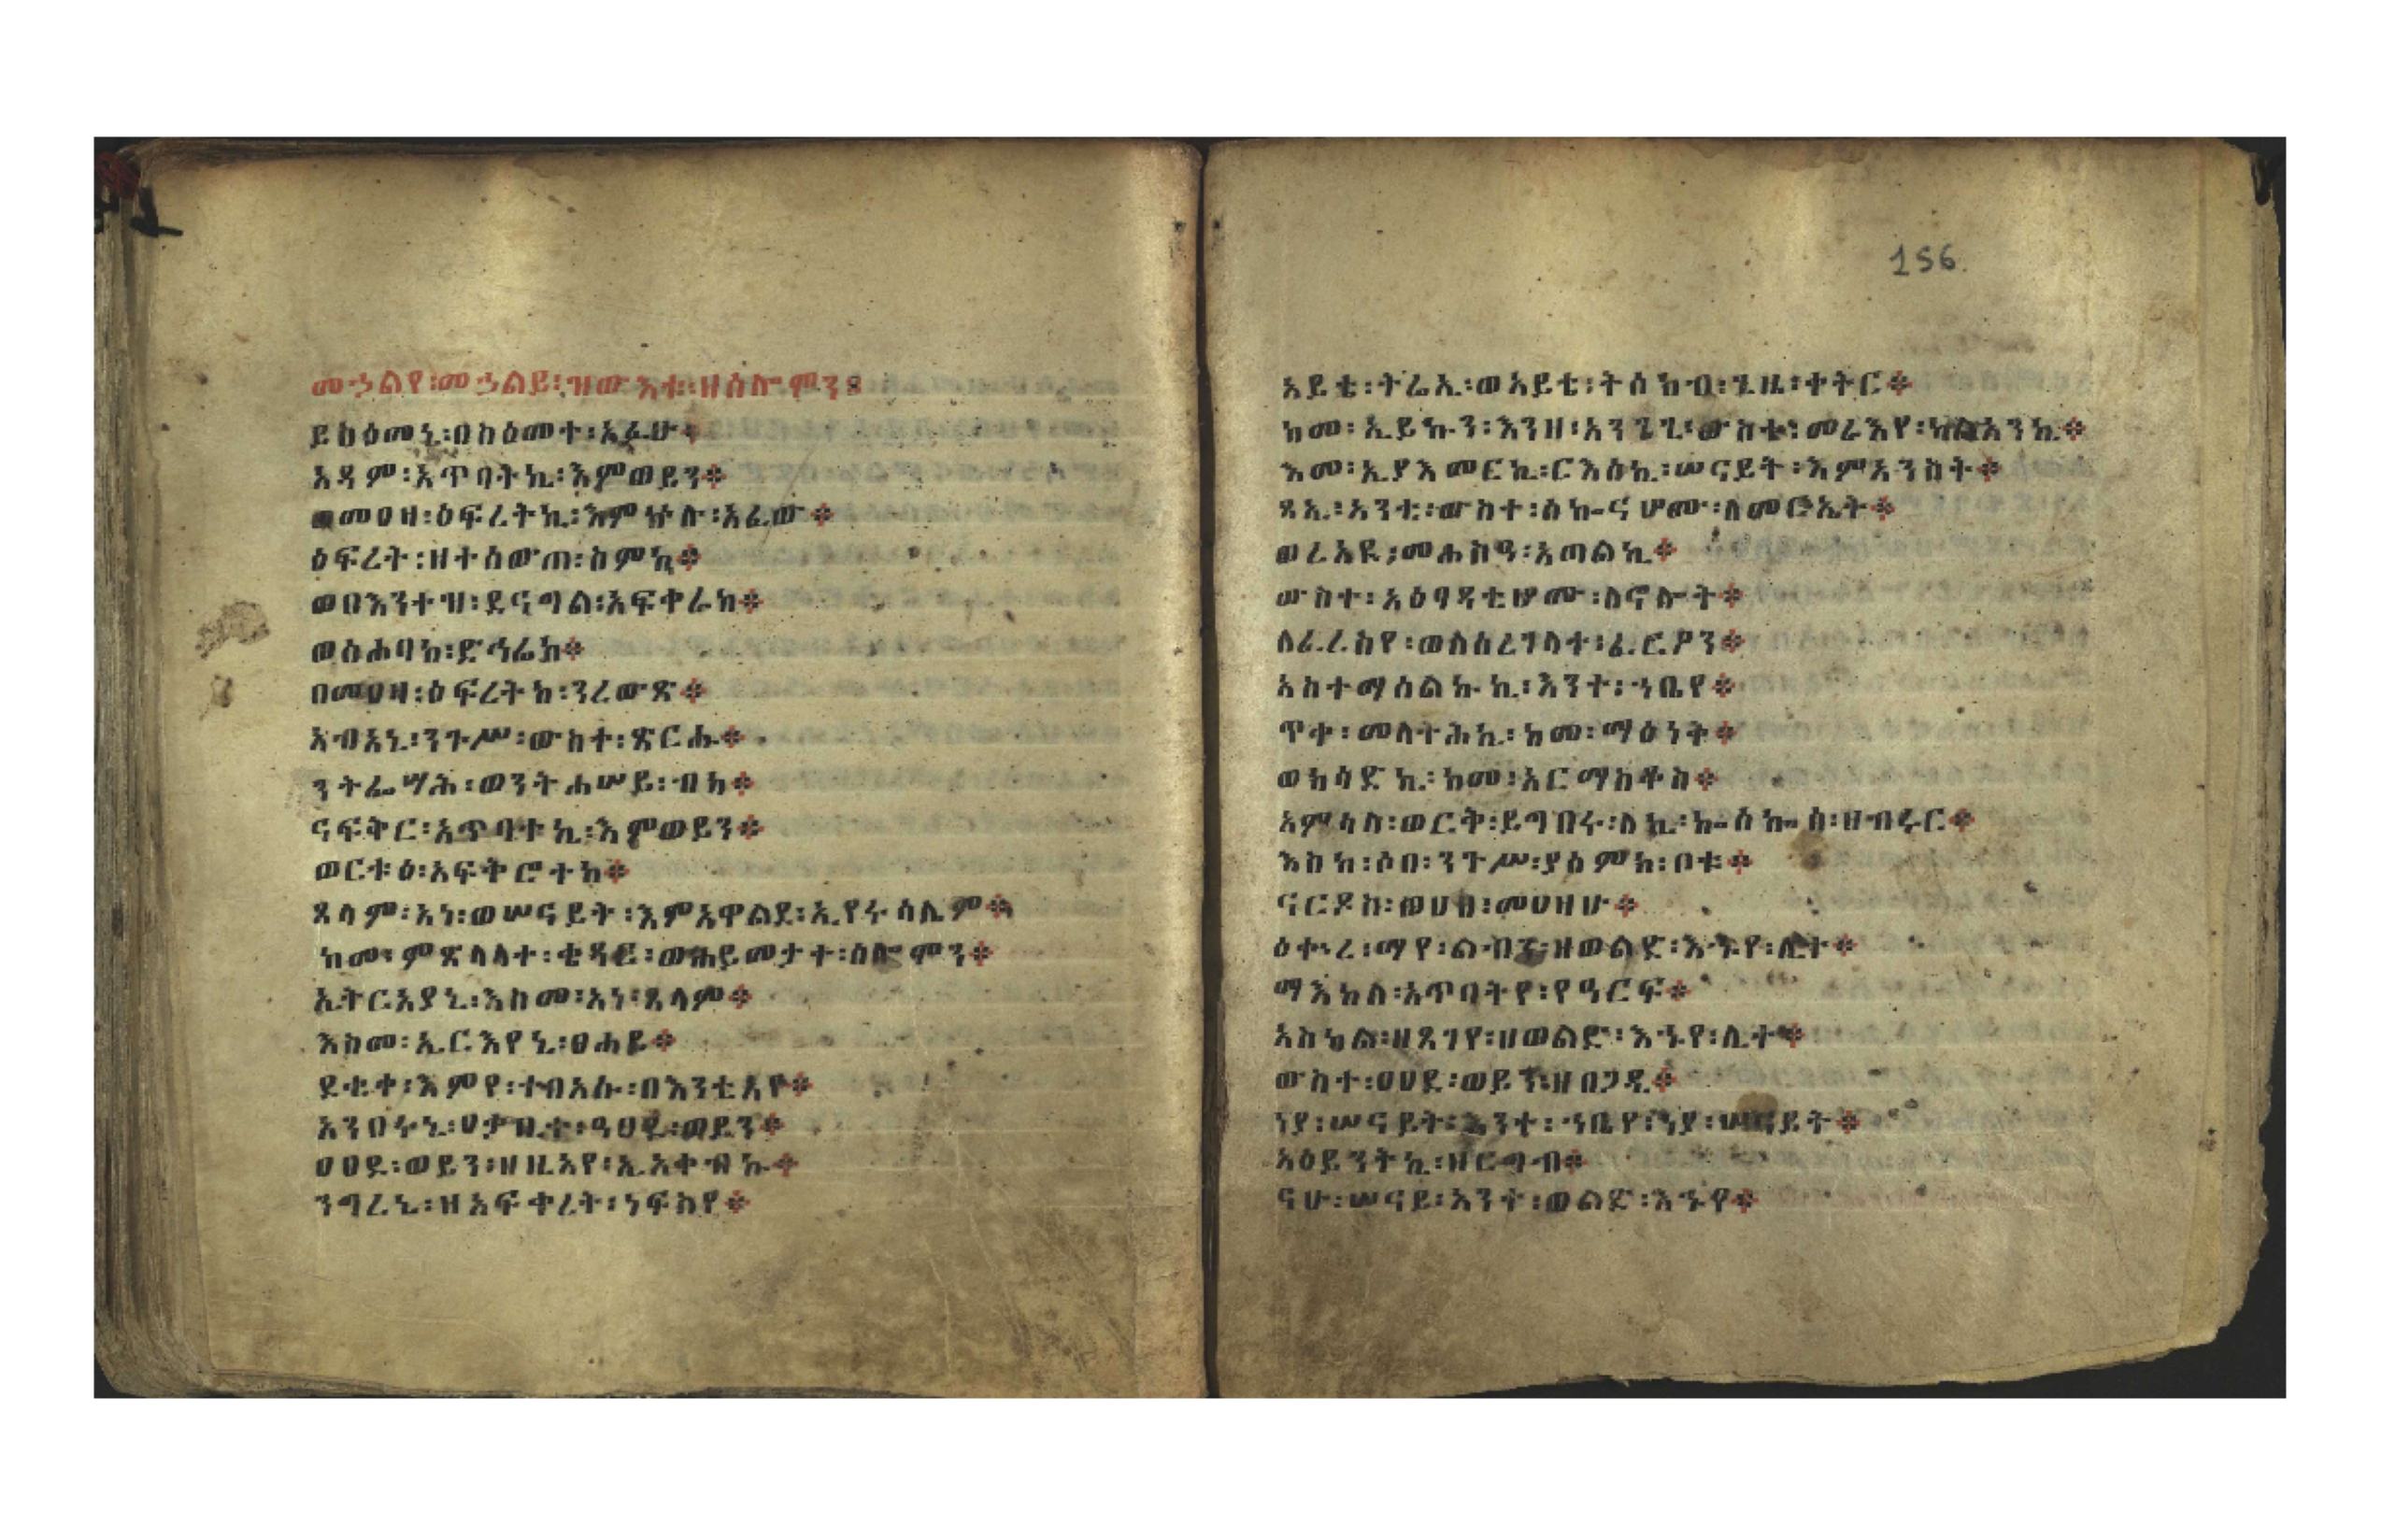 መኃልየ፡መኃልይ፡ዝውእቱ፡ዘሰሎሞን፡
ይስዕመኒ፡በስዕመተ፡አፉሁ፨
አዳም፡አጥባትኪ፡እምወይን፨
ወመዐዛ፡ዕፍረትኪ፡እምኵሉ፡አፈው፨
ዕፍረት፡ዘተሰውጠ፡ስምኪ፨
ወበእንተዝ፡ደናግል፡አፍቀራከ፨
ወስሐባከ፡ድኅሬከ፨
በመዐዛ፡ዕፍረትከ፡ንረውጽ፨
አብአኒ፡ንጉሥ፡ውስተ፡ጽርሑ፨
ንትፌሣሕ፡ወንትሐሠይ፡ብከ፨
ናፍቅር፡አጥባተኪ፡እምወይን፨
ወርቱዕ፡አፍቅሮተከ፨
ጸላም፡አነ፡ወሠናይት፡እምአዋልደ፡ኢየሩሳሌም፨
ከመ፡ምጽላላተ፡ቄዳር፡ወሐይመታተ፡ሰሎሞን፨
ኢትርአያኒ፡እስመ፡አነ፡ጸላም፨
እስመ፡ኢርእየኒ፡ፀሐይ፨
ደቂቀ፡እምየ፡ተበአሱ፡በእንቲአየ፨
አንበሩኒ፡ዐቃቢተ፡ዓፀደ፡ወይን፨
ዐፀደ፡ወይን፡ዘዚአየ፡ኢአቀብኩ፨
ንግረኒ፡ዘአፍቀረት፡ነፍስየ፨
156.
አይቴ፡ትሬኢ፡ወአይቴ፡ትሰክብ፡ጊዜ፡ቀትር፨
ከመ፡ኢይኩን፡እንዘ፡አንጌጊ፡ውስተ፡መራእየ፡ካልአንከ፨
እመ፡ኢያእመርኪ፡ርእሰኪ፡ሠናይት፡እምአንስት፨
ጻኢ፡አንቲ፡ውስተ፡ሰኰናሆሙ፡ለመርኤት፨
ወረአዪ፡መሐስዓ፡አጣልኪ፨
ውስተ፡አዕፃዳቲሆሙ፡ለኖሎት፨
ለፈረስየ፡ወለሰረገላተ፡ፈርዖን፨
አስተማሰልኩኪ፡እንተ፡ኀቤየ፨
ጥቀ፡መላትሕኪ፡ከመ፡ማዕነቅ፨
ወክሳድኪ፡ከመ፡አርማስቆስ፨
አምሳለ፡ወርቅ፡ይግበሩ፡ለኪ፡ኰሰኰሰ፡ዘብሩር፨
እስከ፡ሶበ፡ንጉሥ፡ያሰምክ፡ቦቱ፨
ናርዶስ፡ወሀበ፡መዐዛሁ፨
ዕቍረ፡ማየ፡ልብን፡ዘወልድ፡እኁየ፡ሊተ፨
ማእከለ፡አጥባትየ፡የዓርፍ፨
አስካል፡ዘጸገየ፡ዘወልድ፡እኁየ፡ሊተ፨
ውስተ፡ዐፀደ፡ወይን፡ዘበጋዲ፨
ነያ፡ሠናይት፡እንተ፡ኀቤየ፡ነያ፡ሠናይት፨
አዕይንትኪ፡ዘርግብ፨
ናሁ፡ሠናይ፡አንተ፡ወልድ፡እኁየ፨